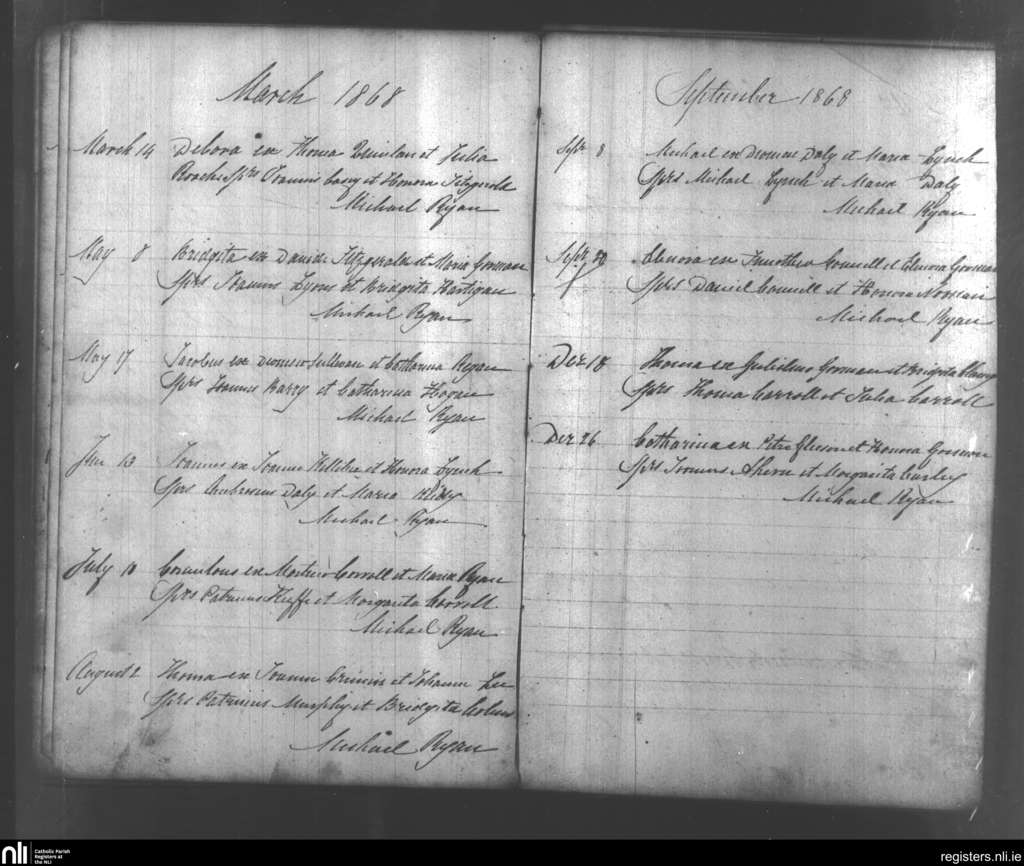 March 1868
March 14 Debora ex Thoma Quinlan et Julia
Roache Sprs Joannis Barry et Honora Fitzgerald
Michael Ryan
May 8 Bridgita ex Davide Fitzgerald et Maria Gorman
Sprs Joannis Lyons et Bridgita Hartigan
Michael Ryan
May 17 Jacobus ex Dionisio Sullivan et Catharina Regan
Sprs Joannis Barry et Catharina Hogan
Michael Ryan
Jun 13 Joannes ex Joanne et Honora Lynch
Sprs Ambrosius Daly et Maria
Michael Ryan
July 10 ex Carroll et Maria Ryan
Sprs Patricius Keeffe et Margarita Carroll
Michael Ryan
August 2 Thoma ex Joanne Crimin et Johanna Lee
Sprs Patricius Murphy et Bridgita
Michael Ryan
September 1868
Sepr 8 Michael ex Dionisio Daly et Maria Lynch
Sprs Michael Lynch et Maria Daly
Michael Ryan
Sepr 20 Elenora ex Timotheo Connell et Elenora Gorman
Sprs Daniel Connell et Honora
Michael Ryan
Decr 18 Thoma ex Gulielmo Gorman et Bridgita
Sprs Thoma Carroll et Julia Carroll
Decr 26 Catharina ex Petro Gleeson et Honora
Sprs Joannis Ahern et Margarita Curley
Michael Ryan
nli
Catholic Parish
Registers at
the NLI
registers.nli.ie